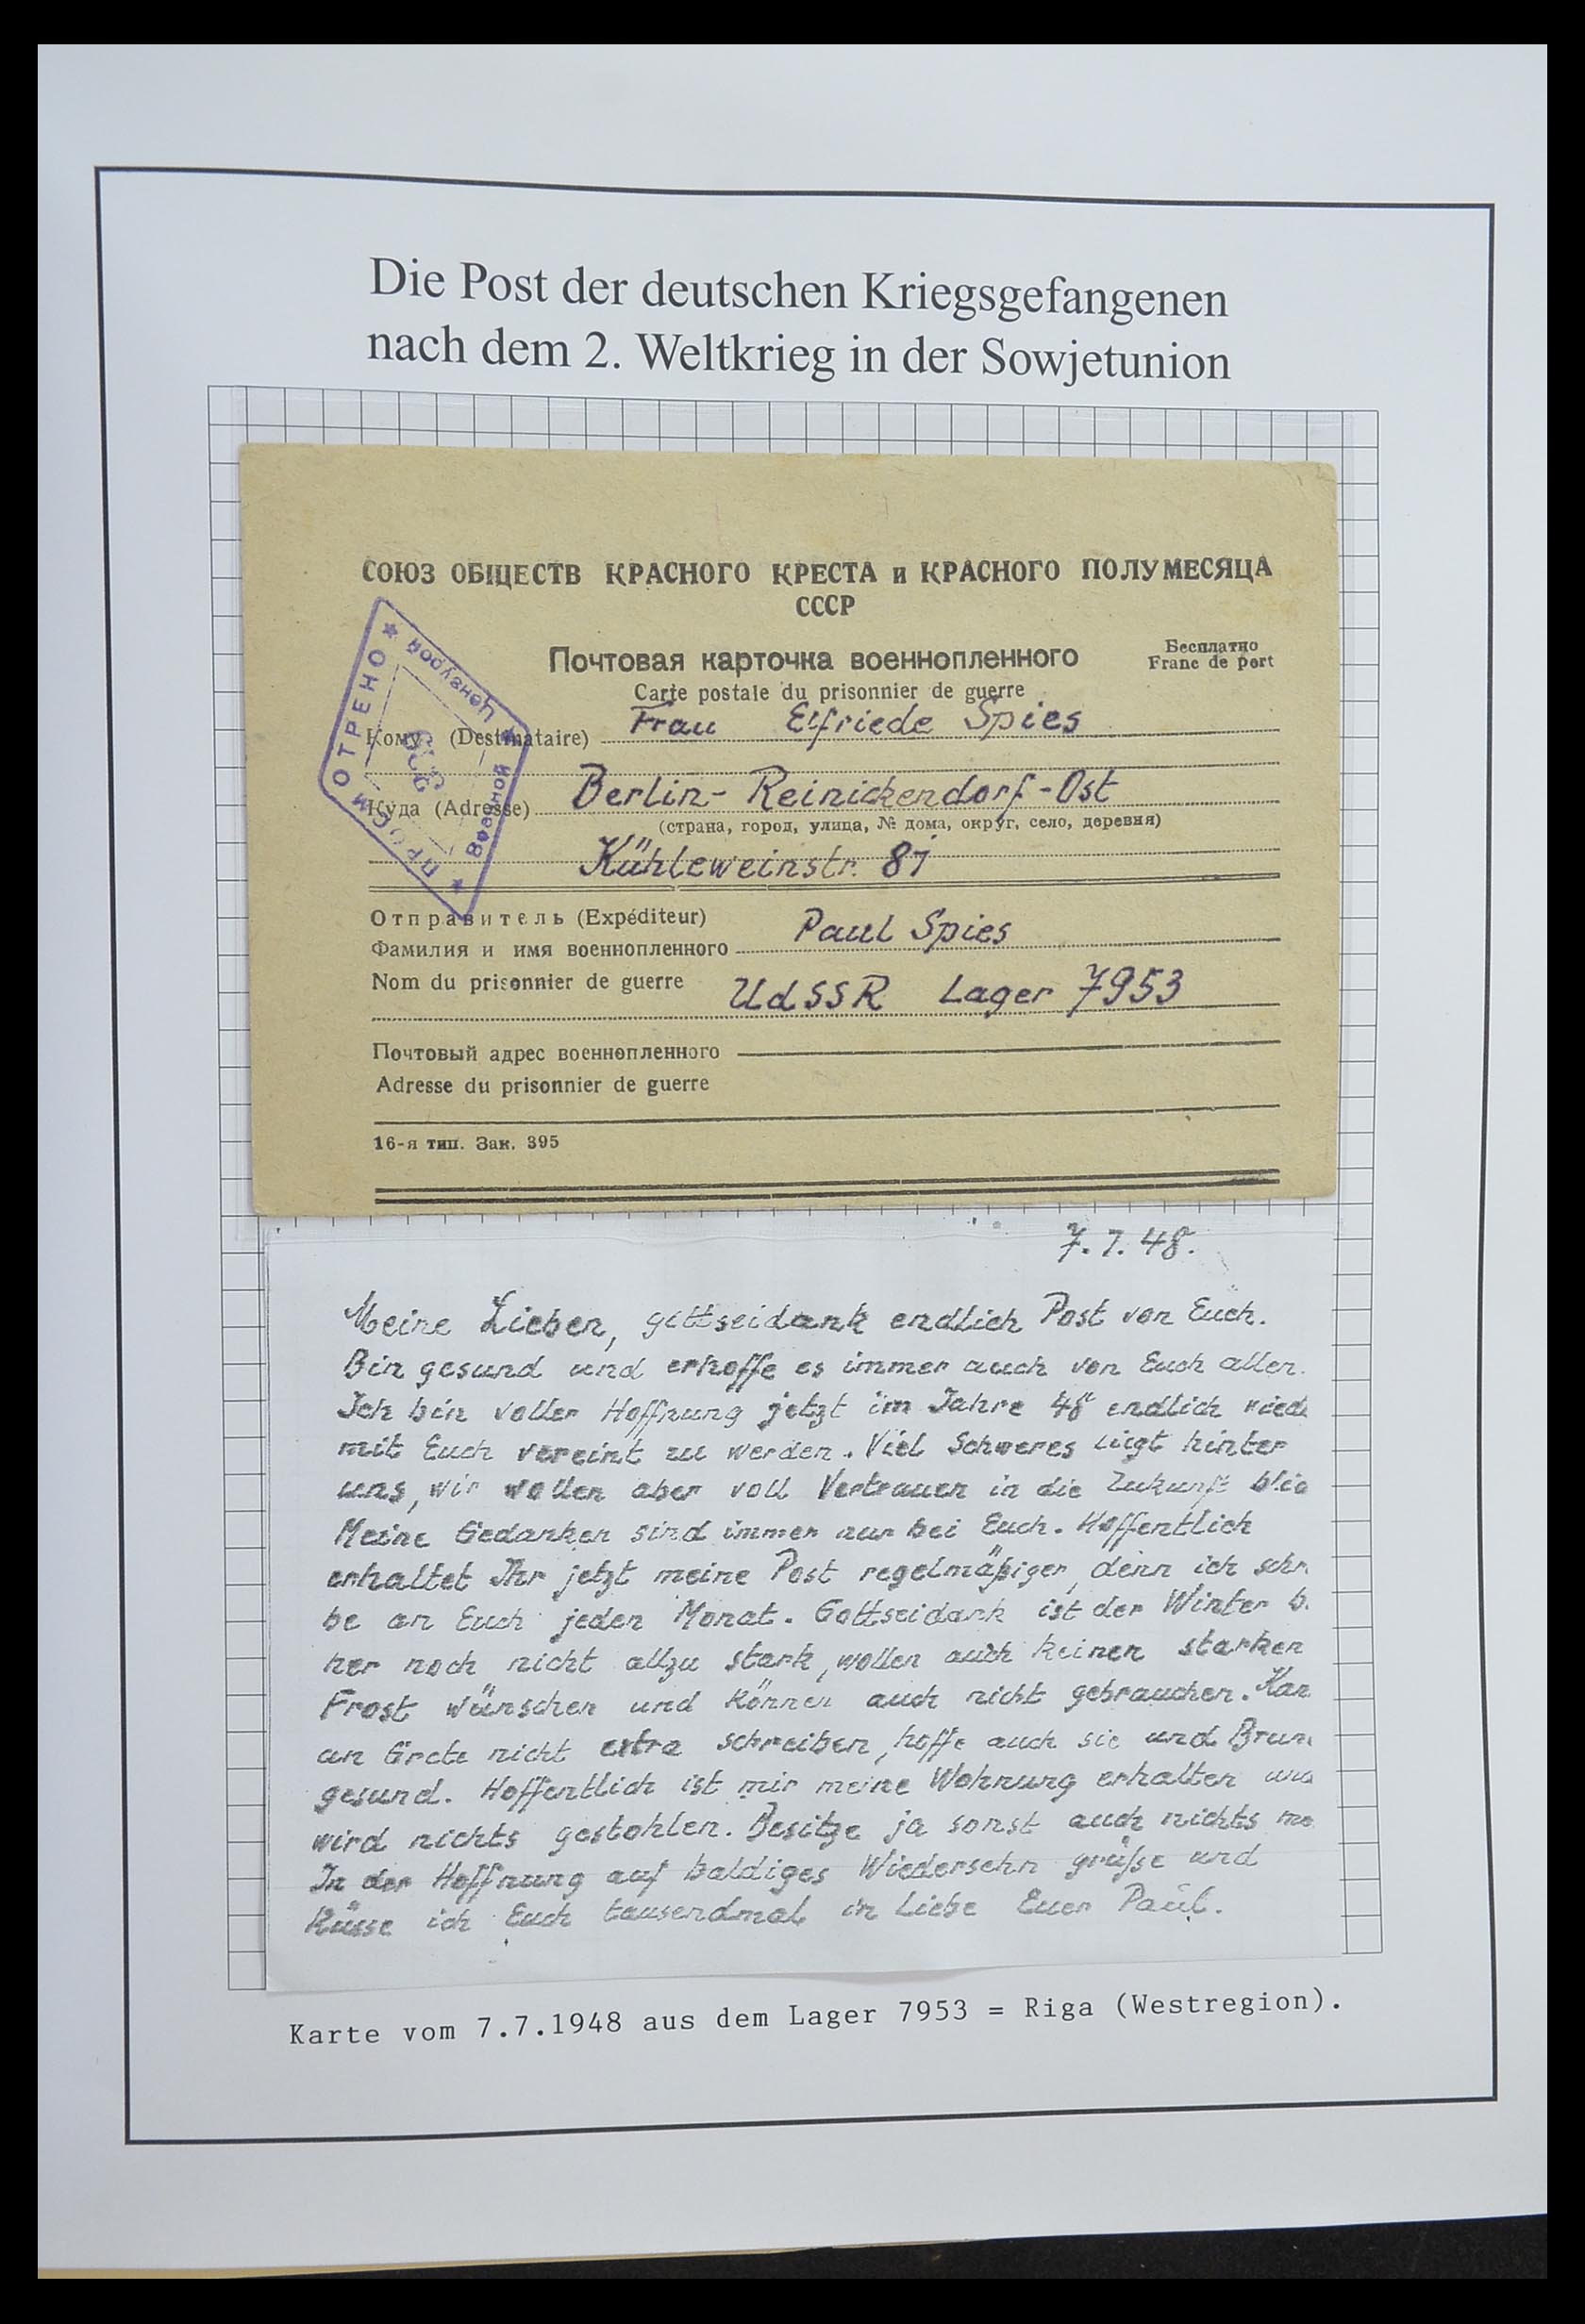 Die Post der deutschen Kriegsgefangenen
nach dem 2. Weltkrieg in der Sowjetunion
СОЮЗ ОБЩЕСТВ КРАСНОГО КРЕСТА и КРАСНОГО ПОЛУМЕСЯЦА
СССР
Почтовая карточка военнопленного
Бесплатно
Franc de port
Carte postale du prisonnier de guerre
ПРОСМОТРЕНО
Военной Цензурой
Кому (Destinataire) Frau Elfriede Spies
Куда (Adresse) Berlin-Reinickendorf-Ost
(страна, город, улица, № дома, округ, село, деревня)
Kühleweinstr. 87
Отправитель (Expéditeur)
Фамилия и имя военнопленного Paul Spies
Nom du prisonnier de guerre UdSSR Lager 7953
Почтовый адрес военнопленного
Adresse du prisonnier de guerre
16-я тип. Зак. 395
7.7.48.
Meine Lieben, gottseidank endlich Post von Euch.
Bin gesund und erhoffe es immer auch von Euch allen.
Ich bin voller Hoffnung jetzt im Jahre 48 endlich wied
mit Euch vereint zu werden. Viel Schweres liegt hinter
uns, wir wollen aber voll Vertrauen in die Zukunft blic
Meine Gedanken sind immer nur bei Euch. Hoffentlich
erhaltet Ihr jetzt meine Post regelmäßiger, denn ich schr
be an Euch jeden Monat. Gottseidank ist der Winter b
her noch nicht allzu stark, wollen auch keinen starken
Frost wünschen und können auch nicht gebrauchen. Kan
an Grete nicht extra schreiben, hoffe auch sie und Brun
gesund. Hoffentlich ist mir meine Wohnung erhalten und
wird nichts gestohlen. Besitze ja sonst auch nichts me
In der Hoffnung auf baldiges Wiedersehn grüße und
Küsse ich Euch tausendmal in Liebe Euer Paul.
Karte vom 7.7.1948 aus dem Lager 7953 = Riga (Westregion).